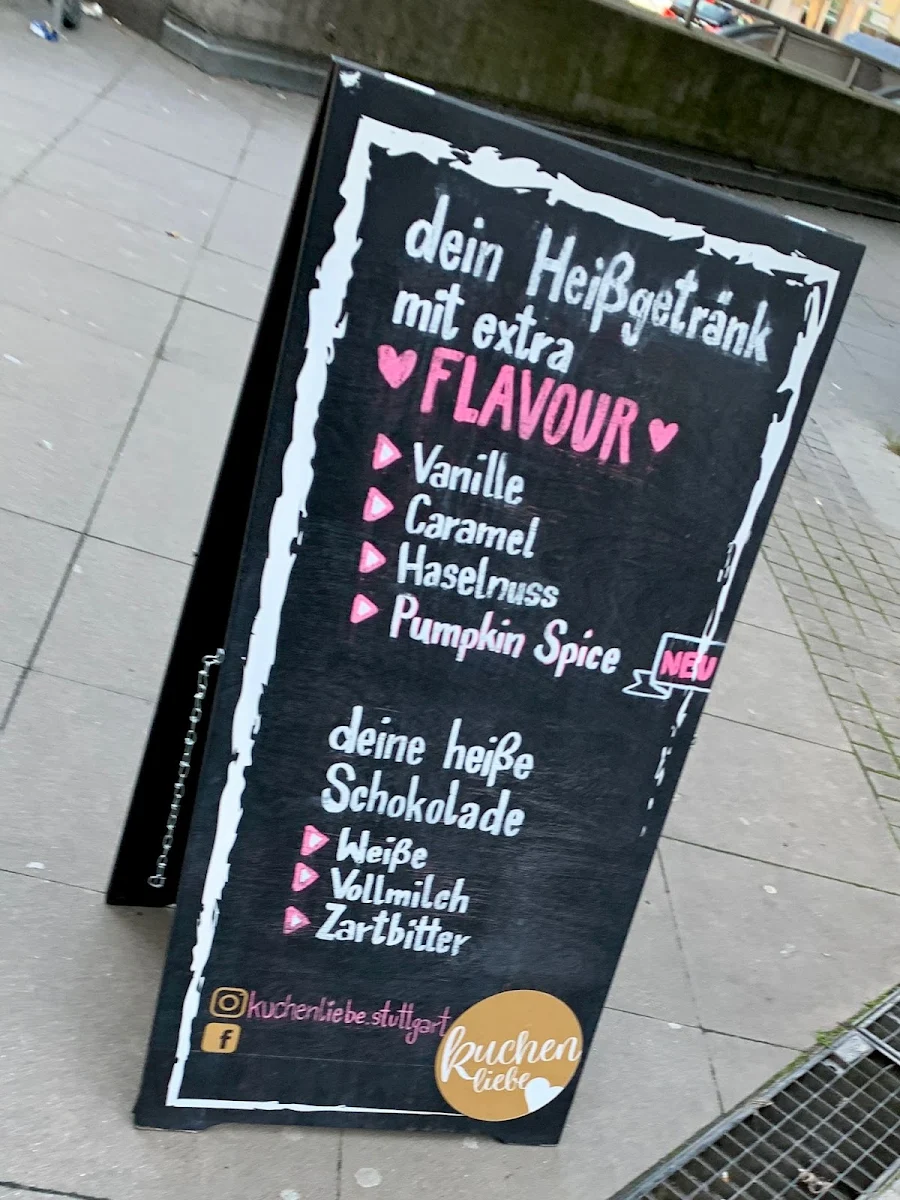 dein Heißgetränk
mit extra
FLAVOUR
Vanille
Caramel
Haselnuss
Pumpkin Spice NEU
deine heiße
Schokolade
Weiße
Vollmilch
Zartbitter
kuchenliebe.stuttgart
f
kuchen
liebe